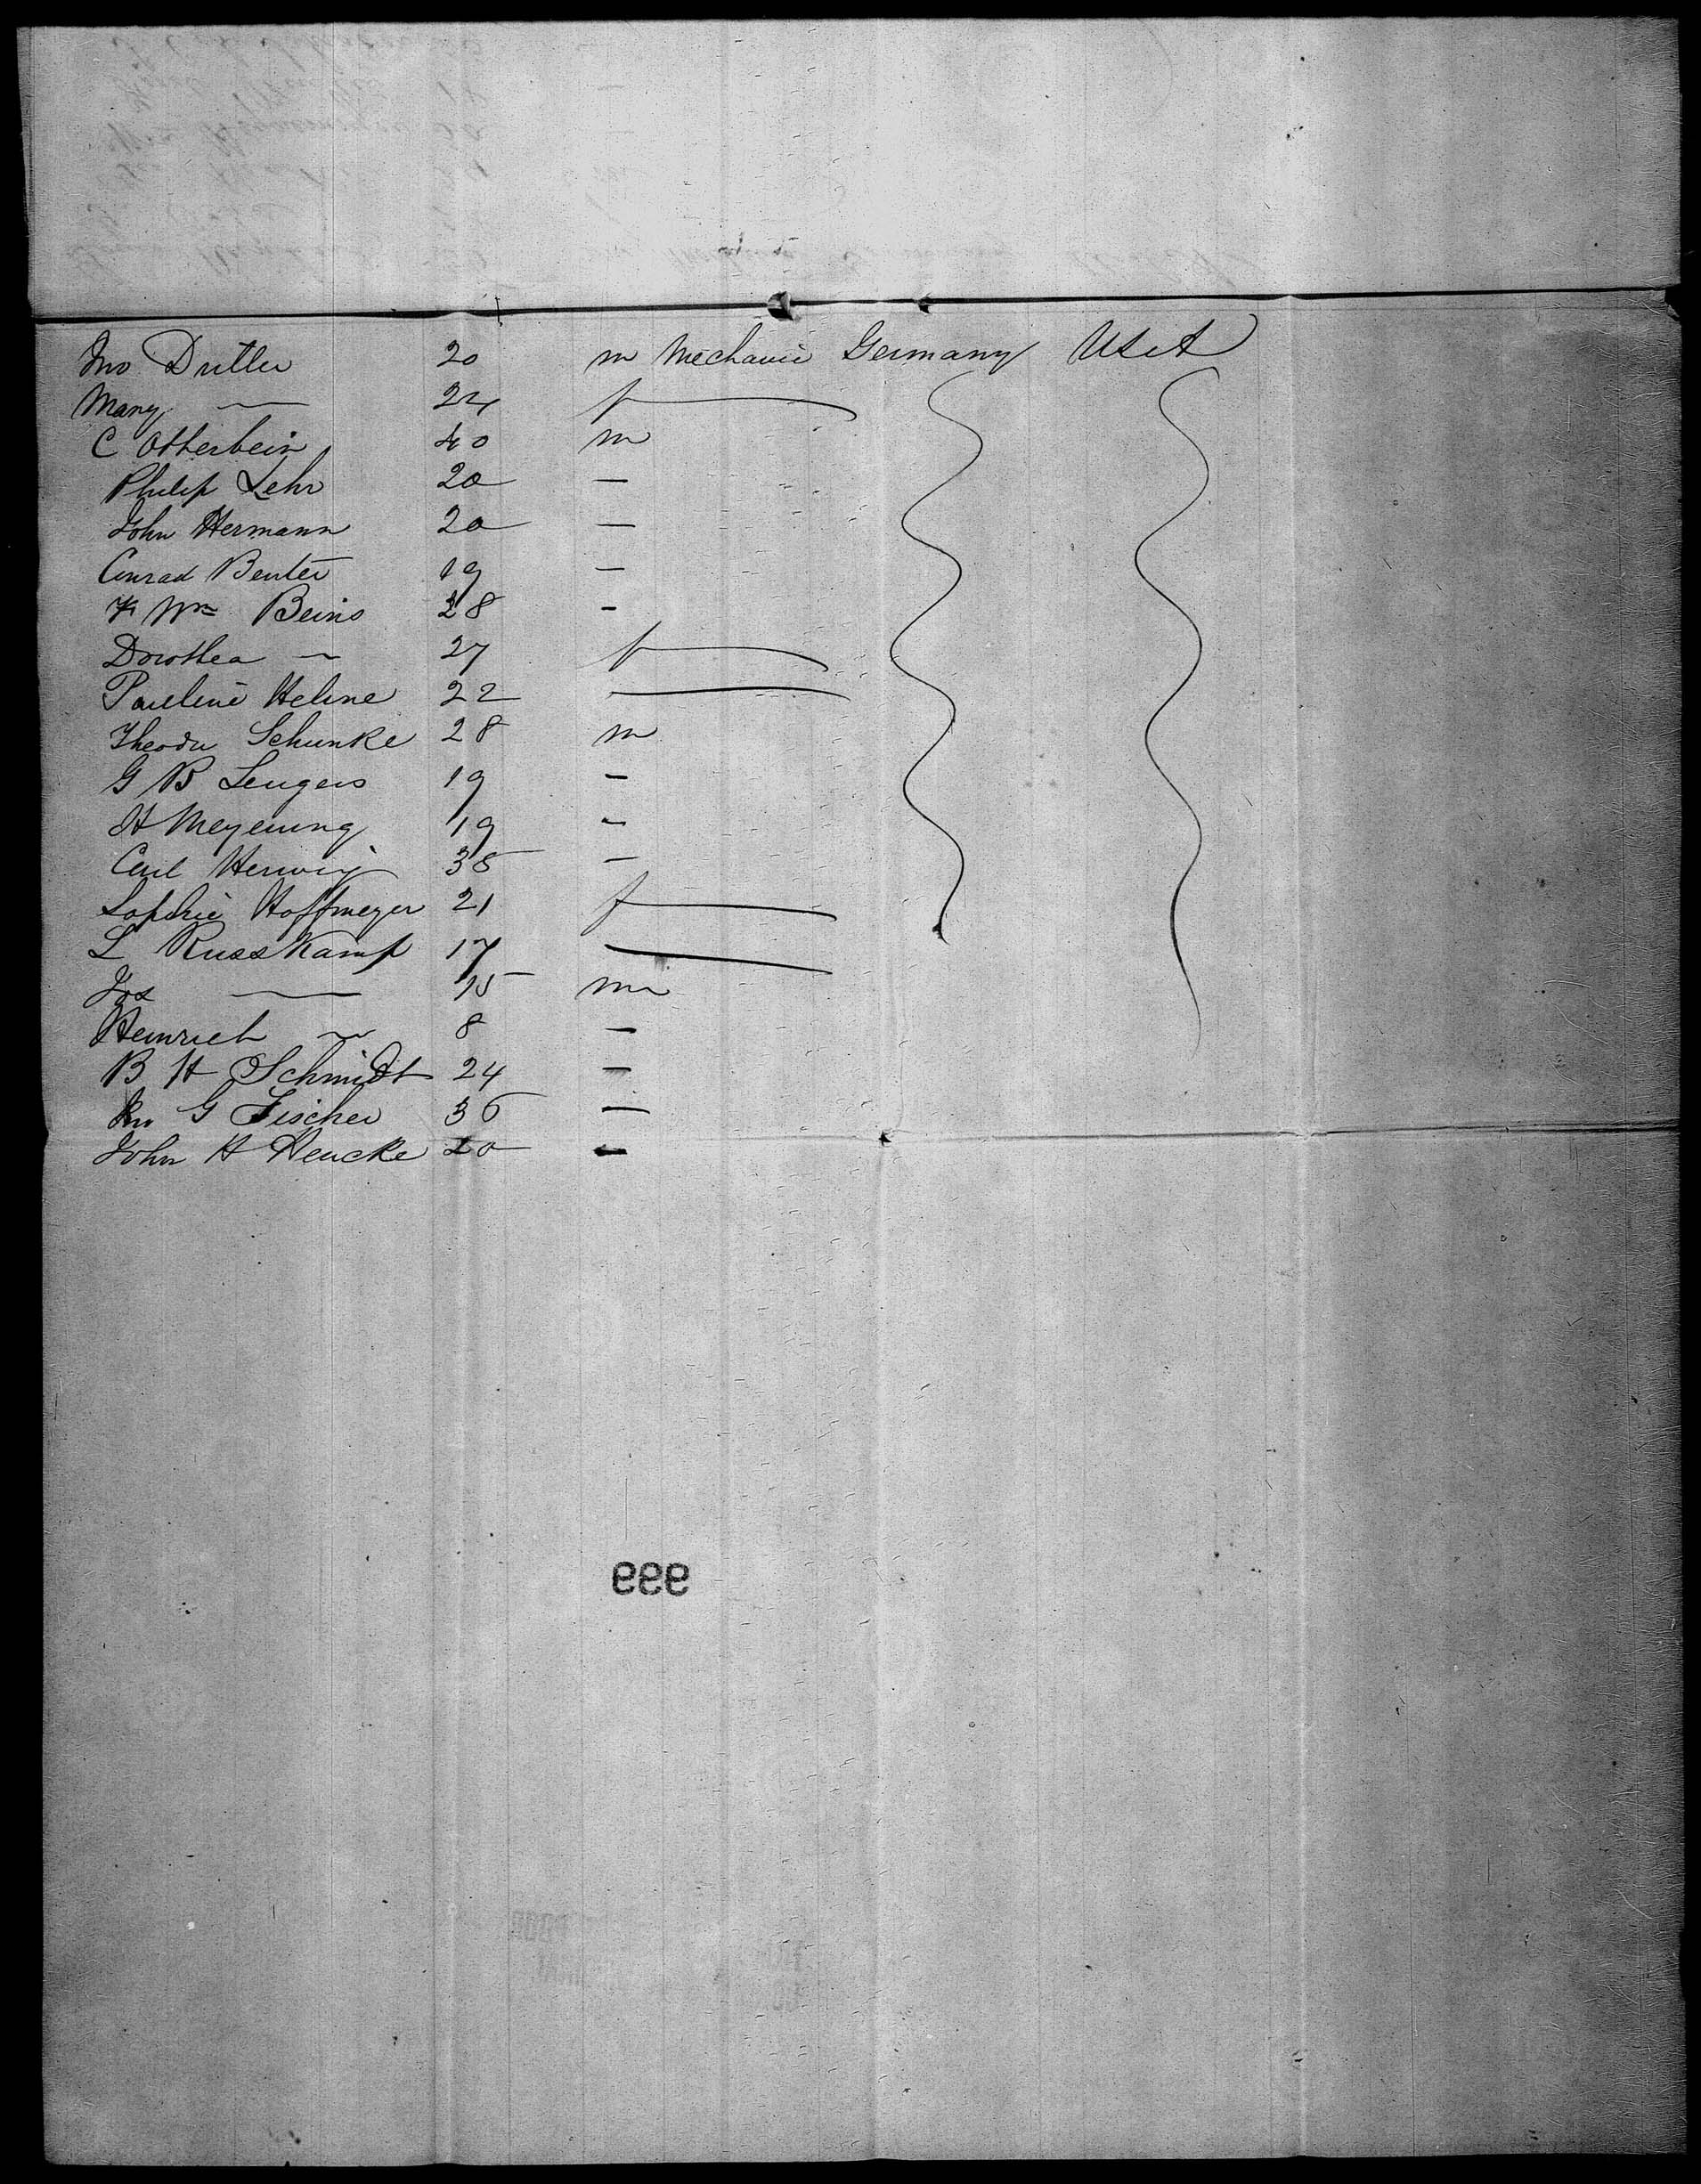 Jno Dutler 20 m Mechanic Germany USA
Mary — 24 f
C Otterbein 40 m
Philip Lehr 20 —
John Hermann 20 —
Conrad Benter 19 —
F Wm Beins 28 -
Dorothea ~ 27 f
Pauline Heline 22 —
Theodu Schunke 28 m
G B Lengers 19 -
H Meyening 19 -
Carl Herwig 38 —
Sophie Hoffmeyer 21 f
L Russkamp 17 —
Jos — 15 m
Heinrich ~ 8 —
B H Schmidt 24 —
Jno G Fischer 36 —
John H Hencke 20 —
999